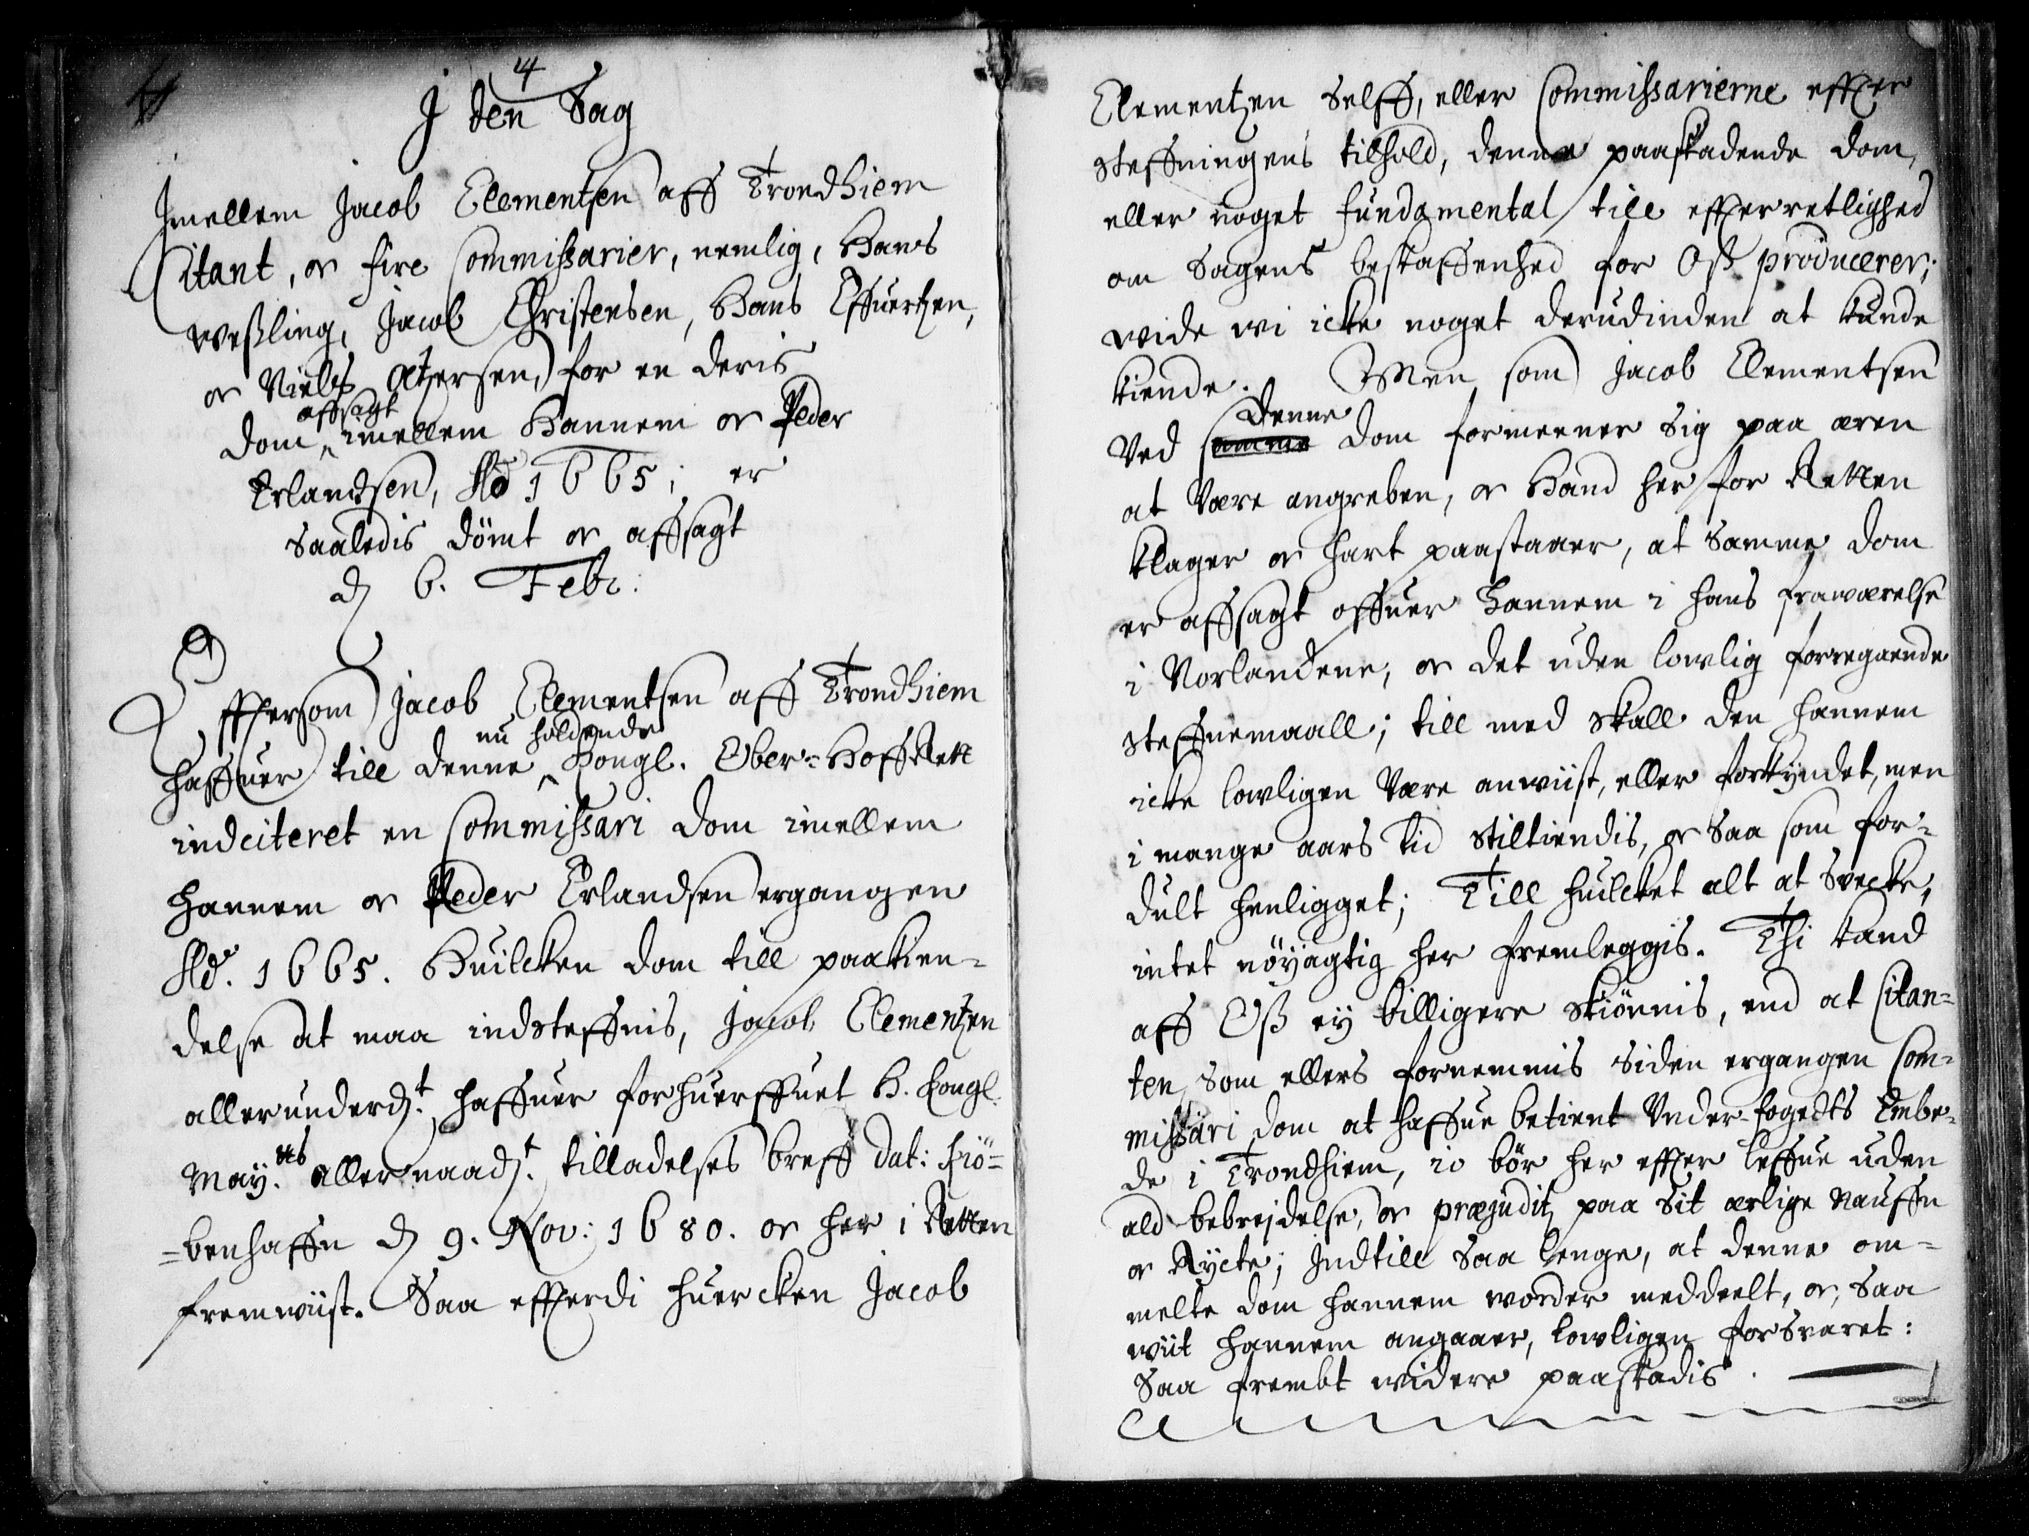 4
I den Sag
Imellem Jacob Clementsen aff Trondhiem
Citant, oc fire Commissarier, nemlig, Hans
Weßling, Jacob Christensen, Hans Effuertzen,
oc Niels Atzersen, for en deris
affsagt
dom imellem Hannem oc Peder
Erlandsen, Ao 1665; er
Saaledis dömt oc affsagt
d 6. Febr:
Effterson Jacob Clementsen aff Trondhiem
nu holdende
haffuer till denne Kongl. Ober-Hoff Rett
indciteret en Commissari dom imellem
hannem oc Peder Erlandsen ergangen
Ao. 1665. Huilcken dom till paakien-
delse at maa indsteffnis, Jacob Clementzen
allerunderd.t haffuer forhuerffuet H. Kongl.
May.tts allernaad.t tilladelses breff dat: Kiö-
=benhaffn d 9. Nov: 1680. oc her i Retten
fremwiist. Saa effterdi huercken Jacob
Clementzen Selff, eller Commissarierne effter
Steffningens tilhold, denne paaskadende dom,
eller noget fundamental till effterretlighed
om Sagens beskaffenhed for Oß producerer;
wide wi icke noget derudinden at kunde
kiende. Men som Jacob Clementsen
denne
Ved samme dom formeener Sig paa æren
at Være angreben, oc Hand her for Retten
klager oc hart paastaaer, at Samme dom
er affsagt offuer hannem i hans frawærelse
i Norlandene, oc det uden lowlig forregaaende
Steffnemaall; till med Skall den hannem
icke lowligen Være anwiist, eller forkyndet, men
i mange aars tid Stiltiendis, oc Saa som for-
dult henligget; Till huilcket alt at Svecke,
intet nöyagtig her fremleggis. Thi kand
aff Oß ey billigere Skiönnis, end at Citan-
ten, Som ellers fornemmis Siden ergangen Com-
missari dom at haffue betient Under-fogedts Embe-
de i Trondhiem, io bör her effter leffue uden
ald bebrejdelse, oc præjuditz paa Sit ærlige Nauffn
oc Rycte; Indtill Saa lenge, at denne om-
melte dom hannem worder meddeelt, oc, Saa
wiit hannem angaaer, lowligen forsvaret:
Saa frembt widere paaskadis.